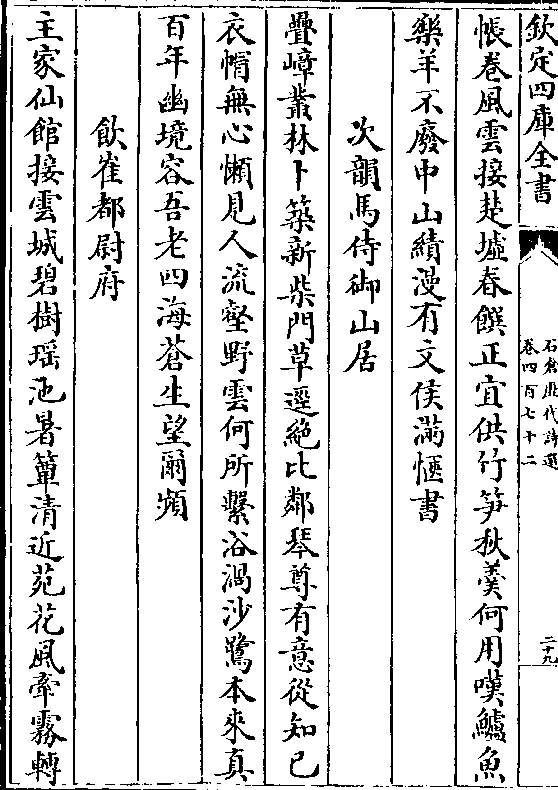 欽定四庫全書
石倉歷代詩選
卷四百七十二
二十九
帳卷風雲接楚墟春饌正宜供竹笋秋羮何用嘆鱸魚
樂羊不廢中山績漫有文侯滿愜書
次韻馬侍御山居
疊嶂叢林卜築新柴門草逕絶比鄰琴尊有意從知已
衣㡌無心懶見人流壑野雲何所繫浴渦沙鷺本來真
百年幽境容吾老四海蒼生望爾頻
飲崔都尉府
主家仙館接雲城碧樹瑶池暑簟清近苑花風牽霧轉